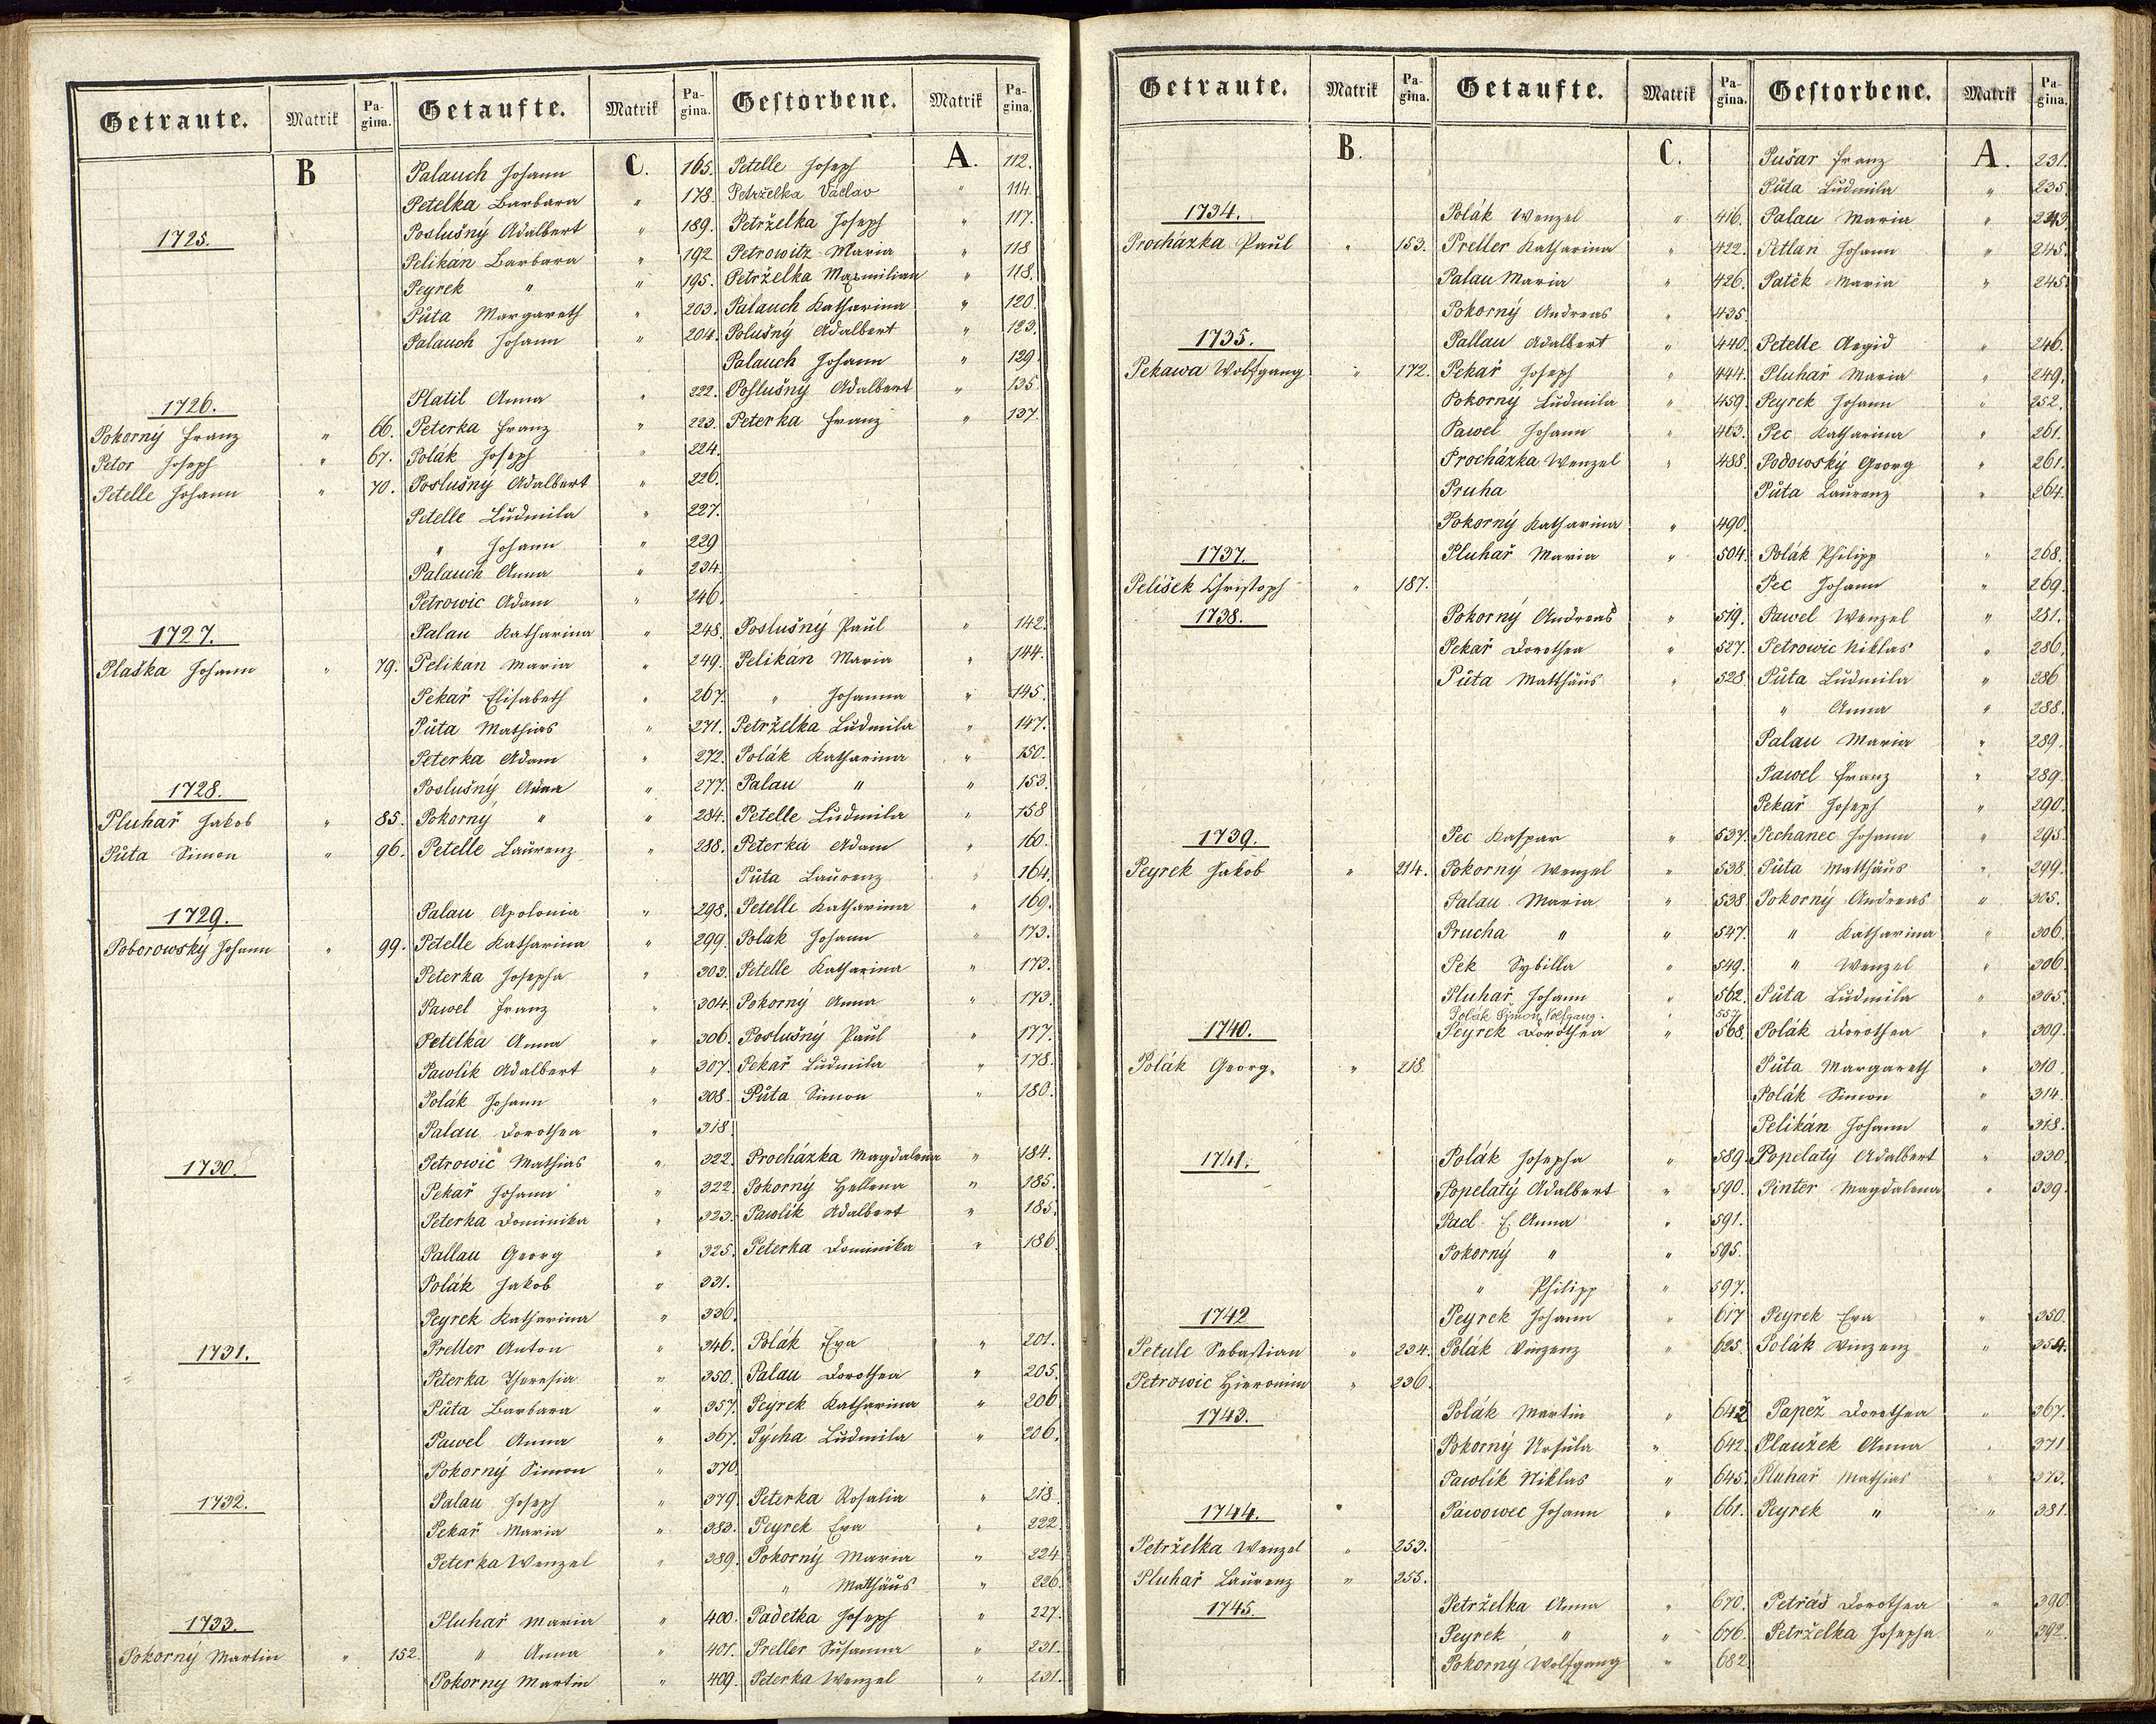 Getraute. Matrik Pagina. Getaufte. Matrik Pagina. Gestorbene. Matrik Pagina.
B Palauch Johann C. 165. Petelle Joseph A. 112.
Petelka Barbara " 178. Petrželka Václav " 114.
Poslušný Adalbert " 189. Petrželka Joseph " 117.
1725. Pelikan Barbara " 192 Petrowitz Maria " 118
Peyrek " " 195. Petrželka Maxmilian " 118.
Půta Margareth " 203. Palauch Katharina " 120
Palauch Johann " 204. Polušný Adalbert " 123.
Palauch Johann " 129
1726. Platil Anna " 222. Poslušný Adalbert " 135
Pokorný Franz " 66. Peterka Franz " 223. Peterka Franz " 137.
Petor Joseph " 67. Polák Joseph " 224.
Petelle Johann " 70. Poslušný Adalbert " 226.
Petelle Ludmila " 227.
" Johann " 229
Palauch Anna " 234.
Petrowic Adam " 246.
1727. Palau Katharina " 248. Poslušný Paul " 142.
Plaška Johann " 79. Pelikán Maria " 249. Pelikán Maria " 144.
Pekař Elisabeth " 267. " Johanna " 145.
Půta Mathias " 271. Petrželka Ludmila " 147.
Peterka Adam " 272. Polák Katharina " 150.
1728. Poslušný Anna " 277. Palau " " 153.
Pluhař Jakob " 85. Pokorný " " 284. Petelle Ludmila " 158
Půta Simon " 96. Petelle Laurenz " 288. Peterka Adam " 160.
Půta Laurenz " 164.
1729. Palau Apolonia " 298. Petelle Katharina " 169.
Poborowský Johann " 99. Petelle Katharina " 299. Polak Johann " 173.
Peterka Josepha " 303. Petelle Katharina " 173.
Pawel Franz " 304. Pokorný Anna " 173.
Petelka Anna " 306. Poslušný Paul " 177.
Pawlik Adalbert " 307. Pekař Ludmila " 178.
Polák Johann " 308. Půta Simon " 180.
Palau Dorothea " 318.
1730. Petrowic Mathias " 322. Procházka Magdalena " 184.
Pekař Johann " 322. Pokorný Hellena " 185.
Peterka Dominika " 323. Pawlík Adalbert " 185.
Pallau Georg " 325. Peterka Dominika " 186.
Polák Jakob " 331.
Peyrek Katharina " 336.
1731. Preller Anton " 346. Polák Eva " 201.
Peterka Theresia " 350. Palau Dorothea " 205.
Půta Barbara " 357. Peyrek Katharina " 206
Pawel Anna " 367. Pýcha Ludmila " 206.
Pokorný Simon " 370.
1732. Palau Joseph " 379. Peterka Rosalia " 218.
Pekař Maria " 383. Peyrek Eva " 222.
Peterka Wenzel " 389. Pokorný Maria " 224.
" Matthäus " 226.
1733. Pluhař Maria " 400. Padetka Joseph " 227.
Pokorný Martin " 152. " Anna " 401. Preller Susanna " 231.
Pokorny Martin " 409. Peterka Wenzel " 231.
Getraute. Matrik Pagina. Getaufte. Matrik Pagina. Gestorbene. Matrik Pagina.
B. C. Pušar Franz A. 231.
Půta Ludmila " 235
1734. Polák Wenzel " 416. Palau Maria "
Procházka Paul " 153. Preller Katharina " 422. Petlan Johann " 245.
Palau Maria " 426. Patěk Maria " 245.
Pokorný Andreas " 435.
1735. Pallau Adalbert " 440. Petelle Aegid " 246.
Pekawa Wolfgang " 172. Pekař Joseph " 444. Pluhař Maria " 249.
Pokorny Ludmila " 459. Peyrek Johann " 252.
Pawel Johann " 463. Pec Katharina " 261.
Procházka Wenzel " 488. Podowský Georg " 261.
Pruha Půta Laurenz " 264.
Pokorný Katharina " 490.
1737. Pluhař Maria " 504. Polák Philipp " 268.
Pelišek Christoph " 187. Pec Johann " 269.
1738. Pokorný Andreas " 519. Pawel Wenzel " 281.
Pekař Dorothea " 527. Petrowic Niklas " 286.
Půta Matthäus " 528 Půta Ludmila " 286
" Anna " 288.
Palau Maria " 289.
Pawel Franz " 289.
Pekař Joseph " 290.
1739. Pec Kaspar " 537. Pechanec Johann " 295.
Peyrek Jakob " 214. Pokorný Wenzel " 538. Půta Matthäus " 299.
Palau Maria " 538 Pokorný Andreas " 305.
Prucha " " 547. " Katharina " 306.
Pek Sybilla " 549. " Wenzel " 306
Pluhař Johann " 562. Půta Ludmila " 305.
Polák Simon Wolfgang. " 557
1740. Peyrek Dorothea " 568. Polák Dorothea " 309.
Polák Georg. " 218. Půta Margareth " 310.
Polák Simon " 314.
Pelikán Johann " 318.
1741. Polák Josepha " 589. Popelatý Adalbert " 330
Popelatý Adalbert " 590. Pinter Magdalena " 339.
Pacl E. Anna " 591.
Pokorný " " 595.
" Philipp " 597.
1742 Peyrek Johann " 617 Peyrek Eva " 350.
Petule Sebastian " 234. Polák Vinzenz " 625. Polák Vinzenz " 354.
Petrowic Hieronim " 236.
1743. Polák Martin " 642 Papež Dorothea " 367.
Pokorný Ursula " 642. Plaužek Anna " 371
Pawlík Niklas " 645. Pluhař Mathias " 373.
1744. Páwowec Johann " 661. Peyrek " " 381.
Petrželka Wenzel " 253.
Pluhař Laurenz " 255.
1745. Petrželka Anna " 670. Petráš Dorothea " 390
Peyrek " " 676. Petrželka Josepha " 392.
Pokorný Wolfgang " 682